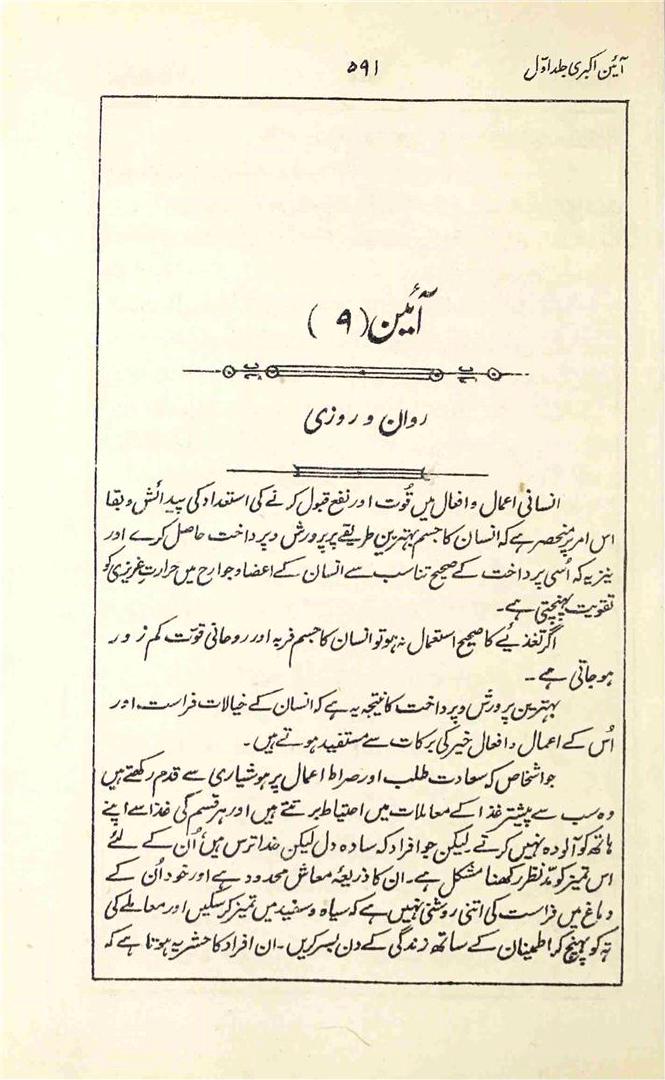 آئین اکبری جلد اوّل
۵۹۱
آئین (۹)
روان و روزی
انسانی اعمال و افعال میں قُوت اور نفع قبول کرنے کی استعداد کی پیدائش و بقا
اس امر پر منحصر ہے کہ انسان کا جسم بہترین طریقے پر پرورش و پرداخت حاصل کرے اور
نیز یہ کہ اُسی پرداخت کے صحیح تناسب سے انسان کے اعضا و جوارح میں حرارتِ غریزی کو
تقویت پہنچتی ہے۔
اگر تغذیئے کا صحیح استعمال نہ ہو تو انسان کا جسم فربہ اور روحانی قوّت کم زور
ہو جاتی ہے۔
بہترین پرورش و پرداخت کا نتیجہ یہ ہے کہ انسان کے خیالات فراست، اور
اُس کے اعمال و افعال خیر کی برکات سے مستفید ہوتے ہیں۔
جو اشخاص کہ سعادت طلب اور صراط اعمال پر ہوشیاری سے قدم رکھتے ہیں
وہ سب سے پیشتر غذا کے معاملات میں احتیاط برتتے ہیں اور ہر قسم کی غذا سے اپنے
ہاتھ کو آلودہ نہیں کرتے لیکن جو افراد کہ سادہ دل لیکن خدا ترس ہیں اُن کے لئے
اس تمیز کو مدّ نظر رکھنا مشکل ہے۔ ان کا ذریعۂ معاش محدود ہے اور خود اُن کے
دماغ میں فراست کی اتنی روشنی نہیں ہے کہ سیاہ و سفید میں تمیز کر سکیں اور معاملے کی
تہ کو پہنچ کر اطمینان کے ساتھ زندگی کے دن بسر کریں۔ ان افراد کا حشر یہ ہوتا ہے کہ